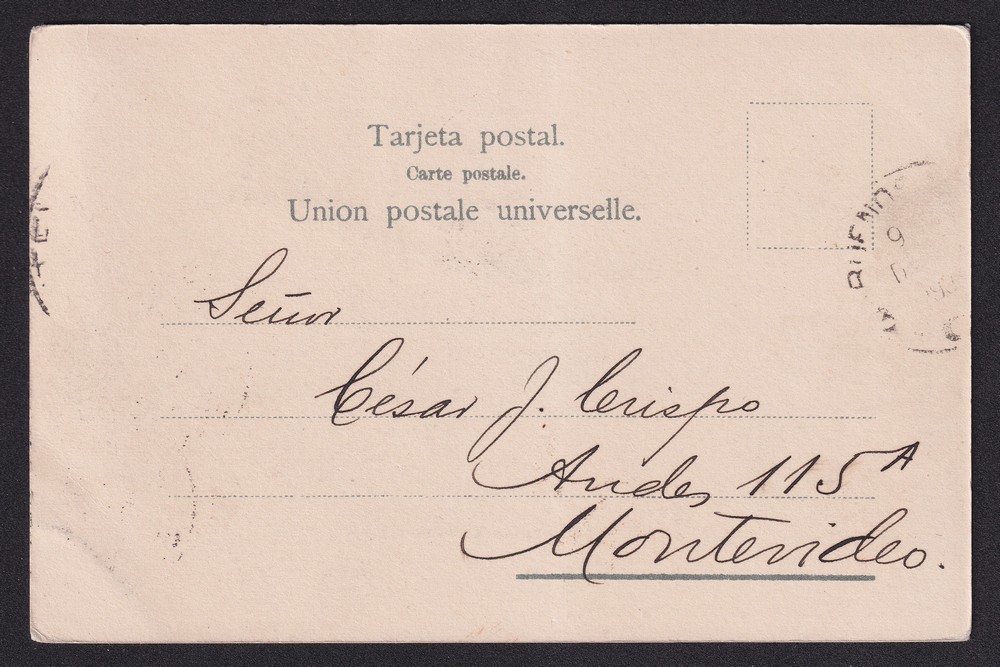 Tarjeta postal.
Carte postale.
Union postale universelle.
BUENO
9
Señor
César J. Crispo
Andes 115 A
Montevideo.